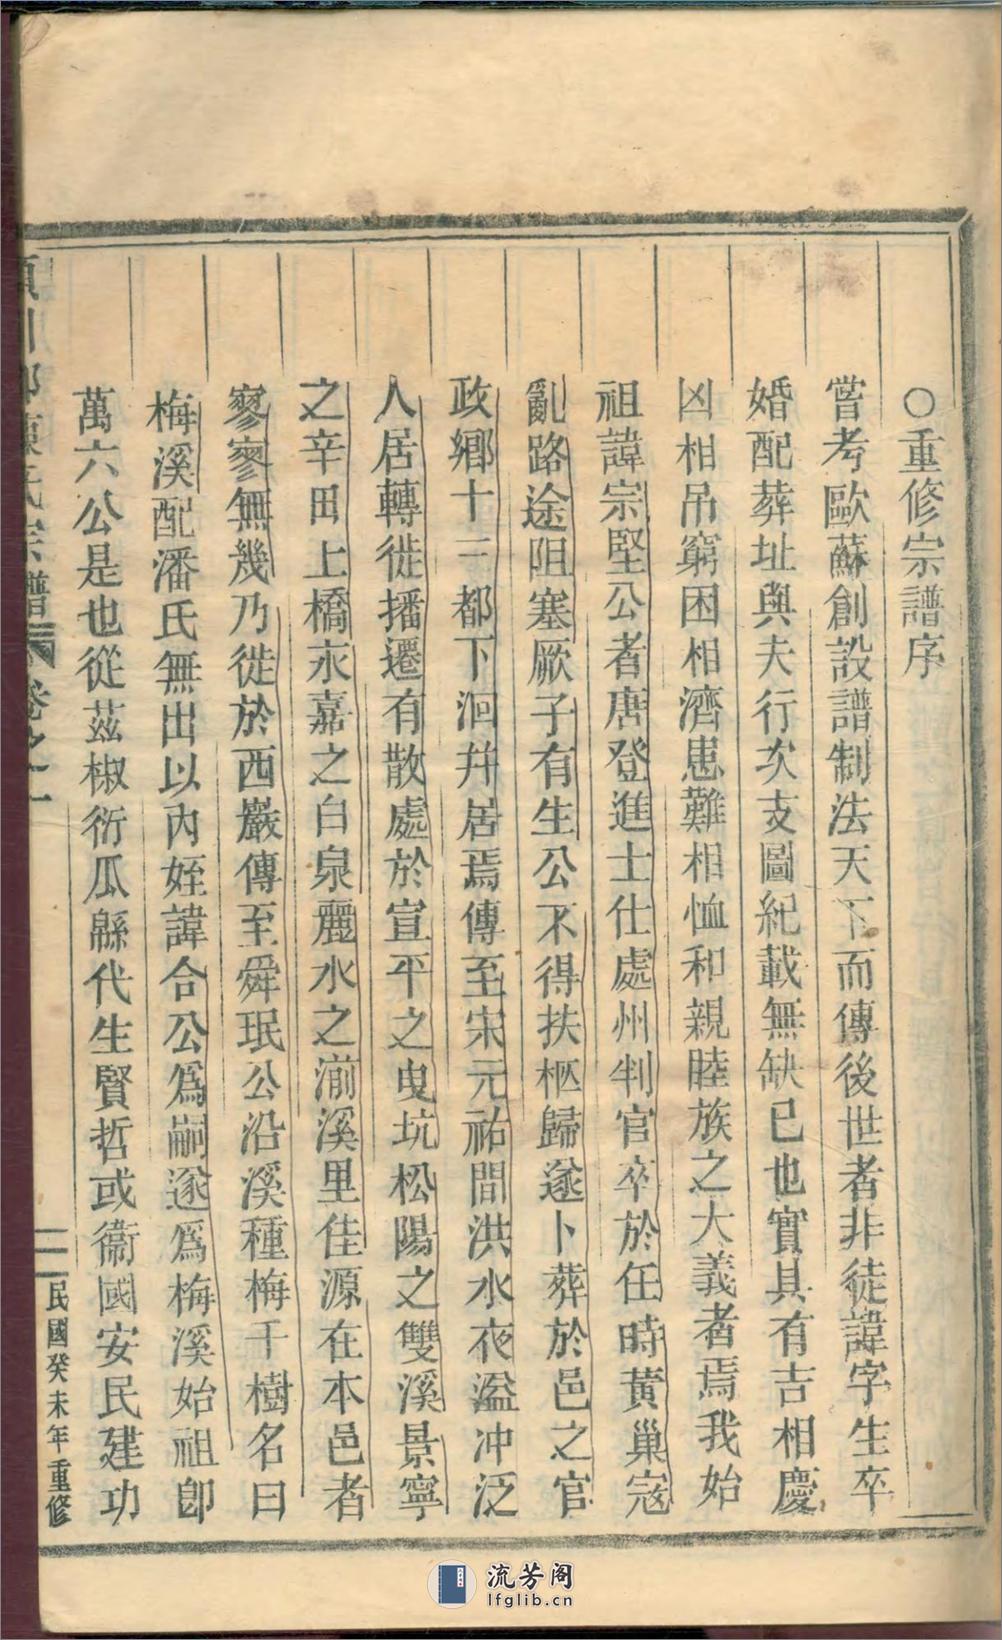 ○重修宗譜序
嘗考歐蘇創設譜制法天下而傳後世者非徒諱字生卒
婚配葬址與夫行次支圖紀載無缺已也實具有吉相慶
凶相吊窮困相濟患難相恤和親睦族之大義者焉我始
祖諱宗堅公者唐登進士仕處州判官卒於任時黃巢寇
亂路途阻塞厥子有生公不得扶柩歸遂卜葬於邑之官
政鄉十三都下洄井居焉傳至宋元祐間洪水夜溢冲泛
人居轉徙播遷有散處於宣平之曳坑松陽之雙溪景寧
之辛田上橋永嘉之白泉麗水之湔溪里佳源在本邑者
寥寥無幾乃徙於西巖傳至舜珉公沿溪種梅千樹名曰
梅溪配潘氏無出以內姪諱合公爲嗣遂爲梅溪始祖卽
萬六公是也從茲椒衍瓜緜代生賢哲或衞國安民建功
川郡陳氏宗譜 卷之一 二 民國癸未年重修
流芳阁
lfglib.cn